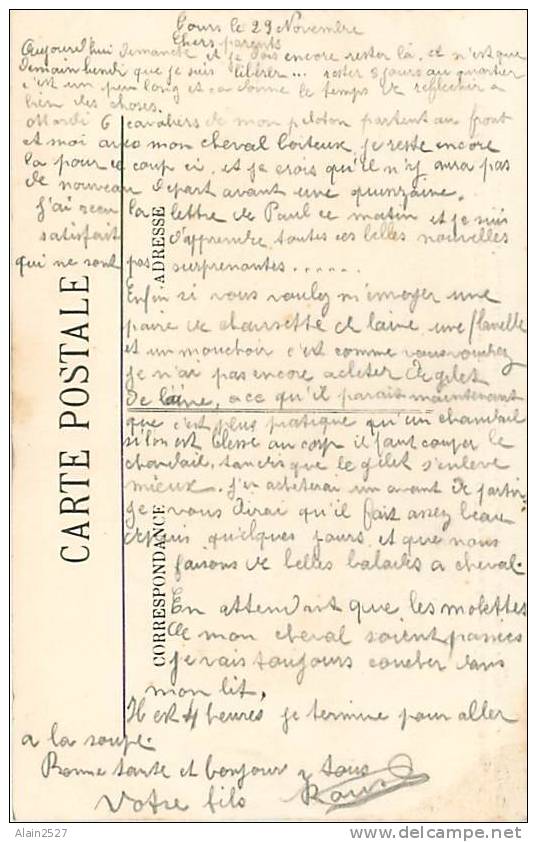 Tours le 29 Novembre
Chers parents
Aujourd'hui dimanche et je dois encore rester là, et n'est que
demain lundi que je suis libérer... rester 8 jours au quartier
c'est un peu long et ça donne le temps de reflechir a
bien des choses.
Mardi 6 cavaliers de mon peloton partent au front
et moi avec mon cheval boiteux je reste encore
la pour ce coup ci, et je crois qu'il n'y aura pas
de nouveau depart avant une quinzaine.
J'ai reçu la lettre de Paul ce matin et je suis
satisfait d'apprendre toutes ces belles nouvelles
qui ne sont pas surprenantes......
Enfin si vous voulez m'envoyer une
paire de chaussette de laine, une flanelle
et un mouchoir c'est comme vous voudrez
je n'ai pas encore acheter de gilet
de laine, a ce qu'il parait maintenant
que c'est plus pratique qu'un chandail
si l'on est blessé au corp il faut couper le
chandail, tandis que le gilet s'enlève
mieux. J'en acheterai un avant de partir
je vous dirai qu'il fait assez beau
depuis quelques jours, et que nous
faisons de belles balades a cheval.
En attendant que les molettes
de mon cheval soient passées
je vais toujours coucher dans
mon lit.
Il est 4 heures je termine pour aller
a la soupe.
Bonne santé et bonjour a tous
Votre fils
CARTE POSTALE
ADRESSE
CORRESPONDANCE
Alain2527
delcampe.net